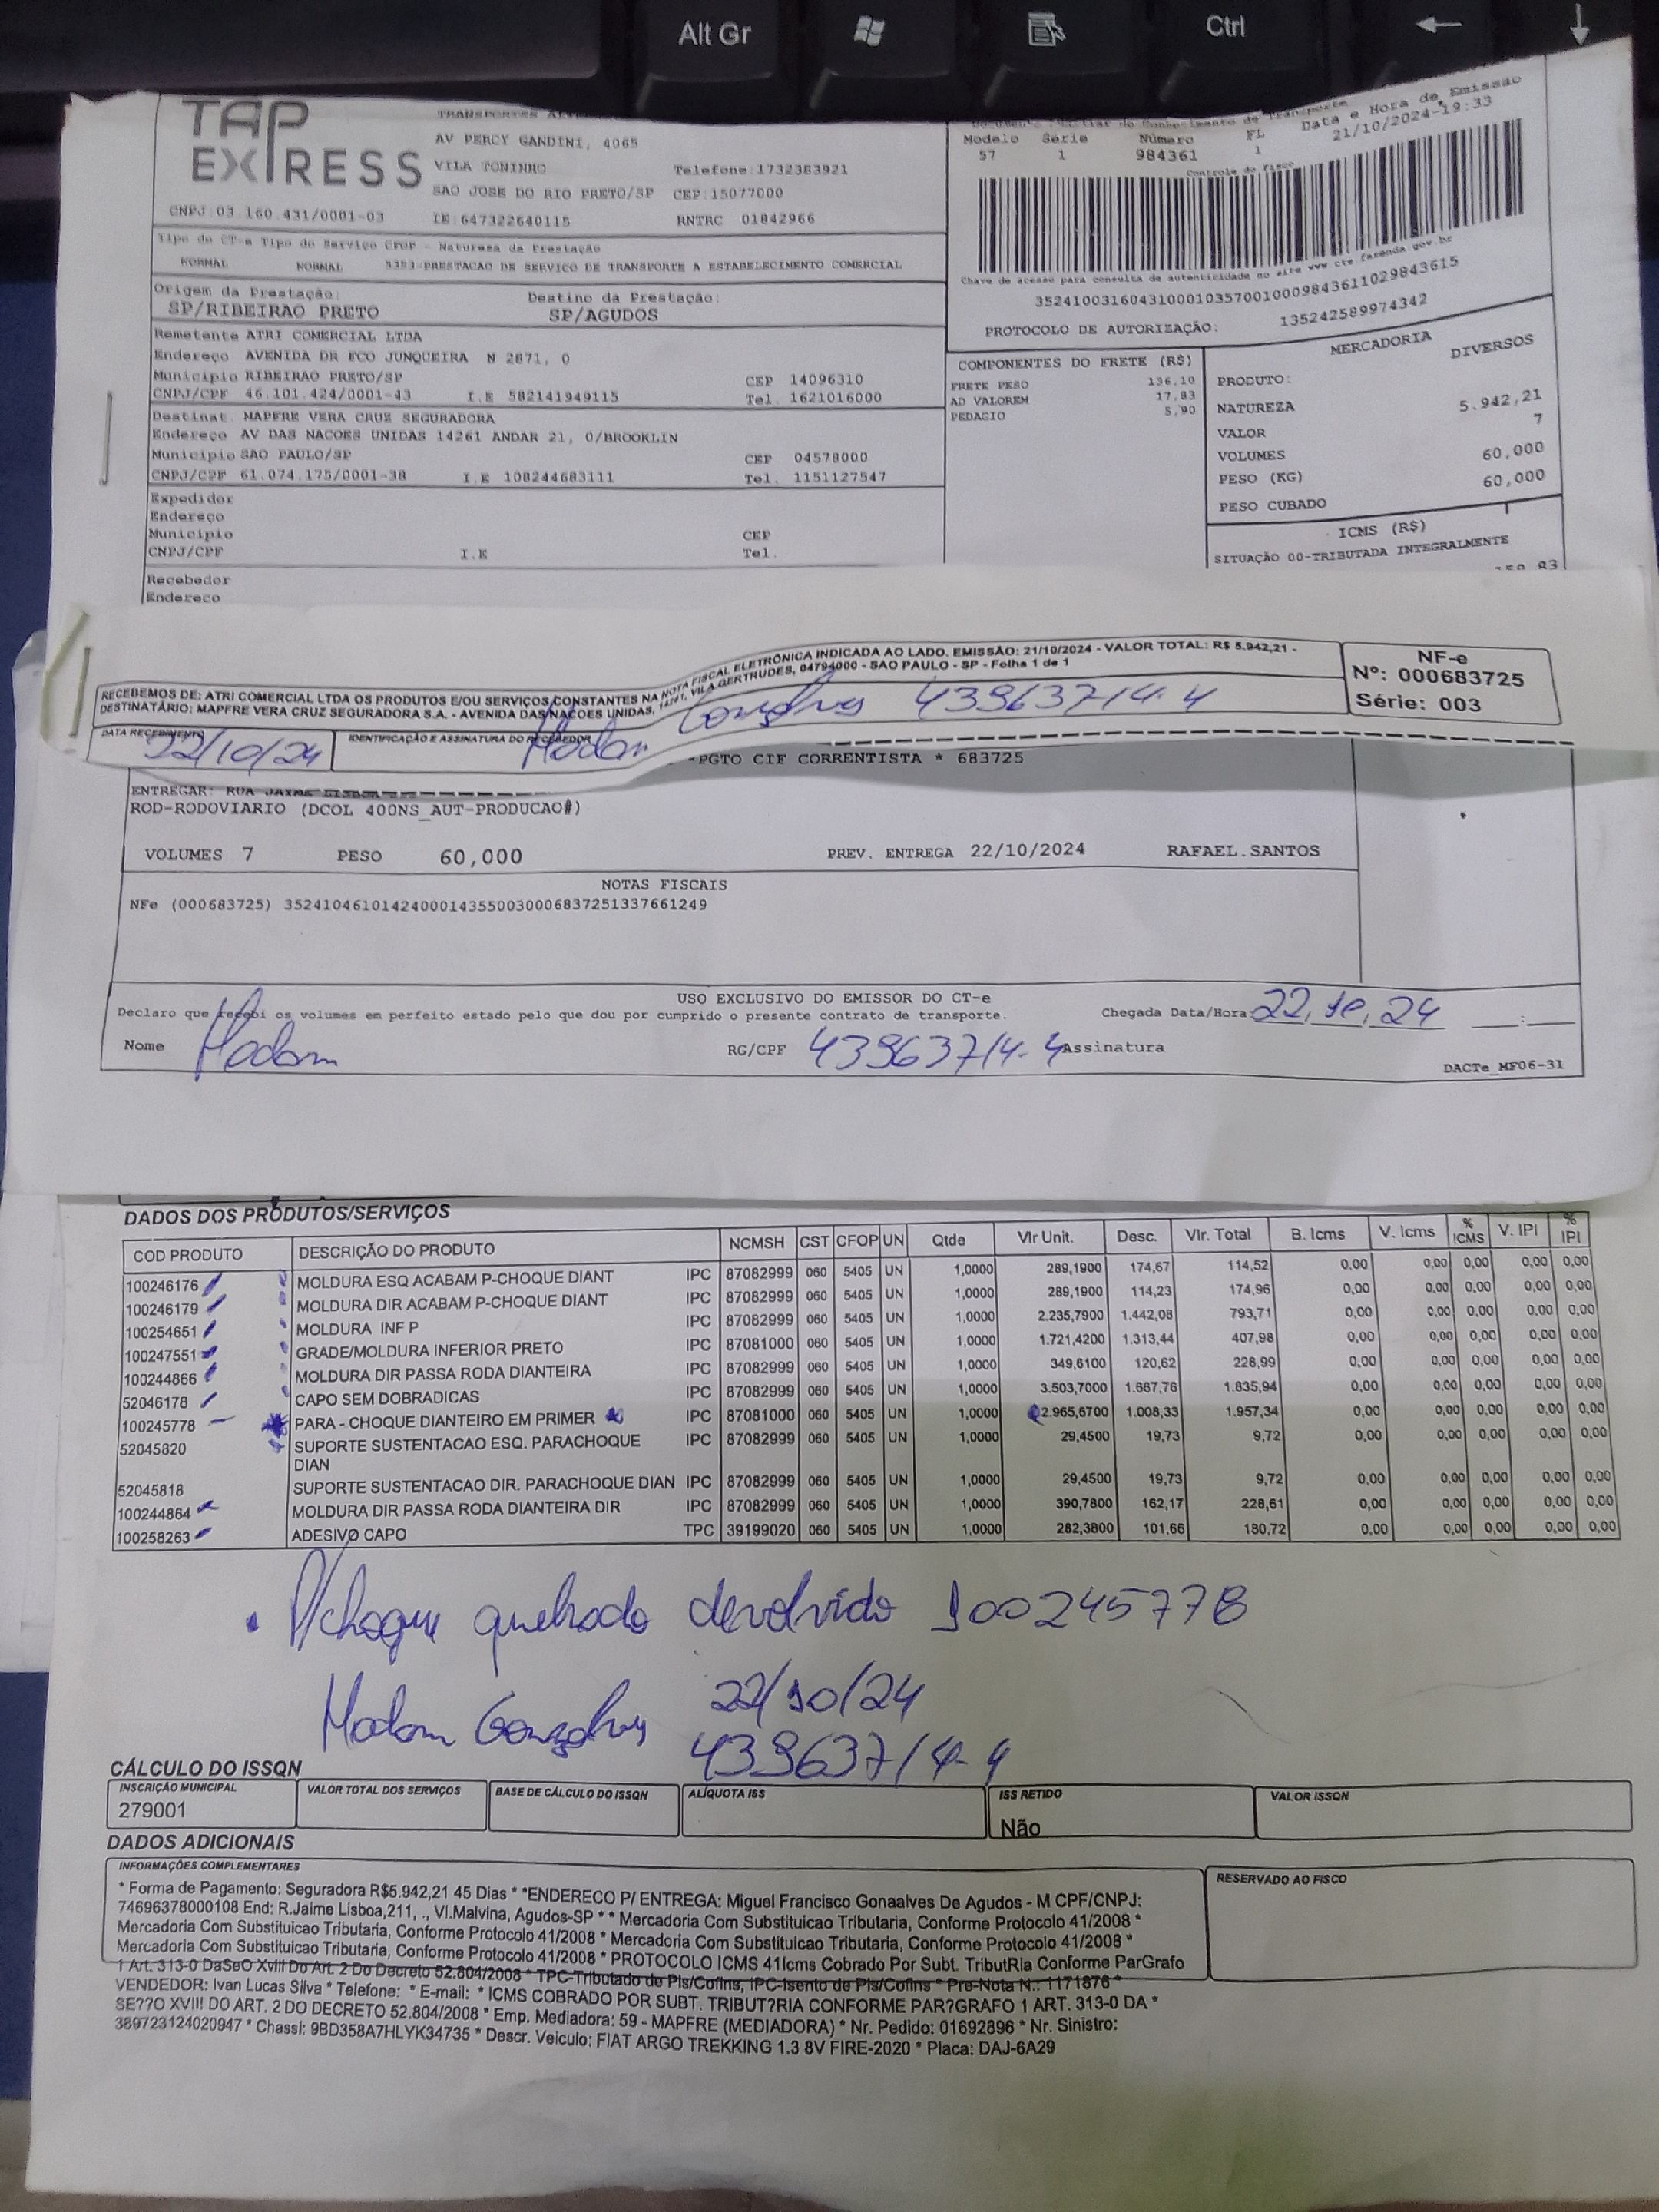 Alt Gr
Ctrl
TAP EXPRESS
AV PERCY GANDINI, 4065
VILA TONINHO Telefone:1732383921
SAO JOSE DO RIO PRETO/SP CEP:15077000
CNPJ:03.160.431/0001-03 IE:647322640115 RNTRC 01842966
Modelo Série Número FL Data e Hora de Emissão
57 1 984361 1 21/10/2024-19:33
Controle do Fisco
Chave de acesso para consulta de autenticidade no site www.cte.fazenda.gov.br
35241003160431000103570010009843611029843615
PROTOCOLO DE AUTORIZAÇÃO: 135242589974342
Tipo do CT-e Tipo do Serviço CFOP - Natureza da Prestação
NORMAL NORMAL 5353-PRESTACAO DE SERVICO DE TRANSPORTE A ESTABELECIMENTO COMERCIAL
Origem da Prestação: Destino da Prestação:
SP/RIBEIRAO PRETO SP/AGUDOS
Remetente ATRI COMERCIAL LTDA
Endereço AVENIDA DR FCO JUNQUEIRA N 2871, 0
Município RIBEIRAO PRETO/SP CEP 14096310
CNPJ/CPF 46.101.424/0001-43 I.E 582141949115 Tel. 1621016000
Destinat. MAPFRE VERA CRUZ SEGURADORA
Endereço AV DAS NACOES UNIDAS 14261 ANDAR 21, 0/BROOKLIN
Município SAO PAULO/SP CEP 04578000
CNPJ/CPF 61.074.175/0001-38 I.E 108244683111 Tel. 1151127547
Expedidor
Endereço
Município CEP
CNPJ/CPF I.E Tel.
Recebedor
Endereço
COMPONENTES DO FRETE (R$)
FRETE PESO 136,10
AD VALOREM 17,83
PEDAGIO 5,90
MERCADORIA
PRODUTO: DIVERSOS
NATUREZA
VALOR 5.942,21
VOLUMES 7
PESO (KG) 60,000
PESO CUBADO 60,000
ICMS (R$)
SITUAÇÃO 00-TRIBUTADA INTEGRALMENTE
RECEBEMOS DE: ATRI COMERCIAL LTDA OS PRODUTOS E/OU SERVIÇOS CONSTANTES NA NOTA FISCAL ELETRÔNICA INDICADA AO LADO. EMISSÃO: 21/10/2024 - VALOR TOTAL: R$ 5.942,21 -
DESTINATÁRIO: MAPFRE VERA CRUZ SEGURADORA S.A. - AVENIDA DAS NACOES UNIDAS, 14261, VILA GERTRUDES, 04794000 - SAO PAULO - SP - Folha 1 de 1
NF-e
Nº: 000683725
Série: 003
DATA RECEBIMENTO IDENTIFICAÇÃO E ASSINATURA DO RECEBEDOR
22/10/24 43963714-4
PGTO CIF CORRENTISTA * 683725
ENTREGAR: RUA JAIME
ROD-RODOVIARIO (DCOL 400NS_AUT-PRODUCAO#)
VOLUMES 7 PESO 60,000 PREV. ENTREGA 22/10/2024 RAFAEL.SANTOS
NOTAS FISCAIS
NFe (000683725) 35241046101424000143550030006837251337661249
USO EXCLUSIVO DO EMISSOR DO CT-e
Declaro que recebi os volumes em perfeito estado pelo que dou por cumprido o presente contrato de transporte. Chegada Data/Hora: 22, 10, 24 __:__
Nome RG/CPF 43963714-4 Assinatura
DACTe_MF06-31
DADOS DOS PRODUTOS/SERVIÇOS
COD PRODUTO DESCRIÇÃO DO PRODUTO NCMSH CST CFOP UN Qtde Vlr Unit. Desc. Vlr. Total B. Icms V. Icms % ICMS V. IPI % IPI
100246176 MOLDURA ESQ ACABAM P-CHOQUE DIANT IPC 87082999 060 5405 UN 1,0000 289,1900 174,67 114,52 0,00 0,00 0,00 0,00 0,00
100246179 MOLDURA DIR ACABAM P-CHOQUE DIANT IPC 87082999 060 5405 UN 1,0000 289,1900 114,23 174,96 0,00 0,00 0,00 0,00 0,00
100254651 MOLDURA INF P IPC 87082999 060 5405 UN 1,0000 2.235,7900 1.442,08 793,71 0,00 0,00 0,00 0,00 0,00
100247551 GRADE/MOLDURA INFERIOR PRETO IPC 87081000 060 5405 UN 1,0000 1.721,4200 1.313,44 407,98 0,00 0,00 0,00 0,00 0,00
100244866 MOLDURA DIR PASSA RODA DIANTEIRA IPC 87082999 060 5405 UN 1,0000 349,6100 120,62 228,99 0,00 0,00 0,00 0,00 0,00
52046178 CAPO SEM DOBRADICAS IPC 87082999 060 5405 UN 1,0000 3.503,7000 1.667,76 1.835,94 0,00 0,00 0,00 0,00 0,00
100245778 PARA - CHOQUE DIANTEIRO EM PRIMER IPC 87081000 060 5405 UN 1,0000 2.965,6700 1.008,33 1.957,34 0,00 0,00 0,00 0,00 0,00
52045820 SUPORTE SUSTENTACAO ESQ. PARACHOQUE IPC 87082999 060 5405 UN 1,0000 29,4500 19,73 9,72 0,00 0,00 0,00 0,00 0,00
DIAN
52045818 SUPORTE SUSTENTACAO DIR. PARACHOQUE DIAN IPC 87082999 060 5405 UN 1,0000 29,4500 19,73 9,72 0,00 0,00 0,00 0,00 0,00
100244864 MOLDURA DIR PASSA RODA DIANTEIRA DIR IPC 87082999 060 5405 UN 1,0000 390,7800 162,17 228,61 0,00 0,00 0,00 0,00 0,00
100258263 ADESIVO CAPO TPC 39199020 060 5405 UN 1,0000 282,3800 101,66 180,72 0,00 0,00 0,00 0,00 0,00
P/choque quebrado devolvido 100245778
22/10/24
43963714-4
CÁLCULO DO ISSQN
INSCRIÇÃO MUNICIPAL VALOR TOTAL DOS SERVIÇOS BASE DE CÁLCULO DO ISSQN ALÍQUOTA ISS ISS RETIDO VALOR ISSQN
279001 Não
DADOS ADICIONAIS
INFORMAÇÕES COMPLEMENTARES RESERVADO AO FISCO
* Forma de Pagamento: Seguradora R$5.942,21 45 Dias * *ENDERECO P/ ENTREGA: Miguel Francisco Gonaalves De Agudos - M CPF/CNPJ:
74696378000108 End: R.Jaime Lisboa,211, ., Vl.Malvina, Agudos-SP * * Mercadoria Com Substituicao Tributaria, Conforme Protocolo 41/2008 *
Mercadoria Com Substituicao Tributaria, Conforme Protocolo 41/2008 * Mercadoria Com Substituicao Tributaria, Conforme Protocolo 41/2008 *
Mercadoria Com Substituicao Tributaria, Conforme Protocolo 41/2008 * PROTOCOLO ICMS 41Icms Cobrado Por Subt. TributRia Conforme ParGrafo
1 Art. 313-0 DaSeO Xviii Do Art. 2 Do Decreto 52.804/2008 * TPC-Tributado de Pis/Cofins, IPC-Isento de Pis/Cofins * Pre-Nota N.: 1171876 *
VENDEDOR: Ivan Lucas Silva * Telefone: * E-mail: * ICMS COBRADO POR SUBT. TRIBUT?RIA CONFORME PAR?GRAFO 1 ART. 313-0 DA *
SE??O XVIII DO ART. 2 DO DECRETO 52.804/2008 * Emp. Mediadora: 59 - MAPFRE (MEDIADORA) * Nr. Pedido: 01692896 * Nr. Sinistro:
389723124020947 * Chassi: 9BD358A7HLYK34735 * Descr. Veiculo: FIAT ARGO TREKKING 1.3 8V FIRE-2020 * Placa: DAJ-6A29